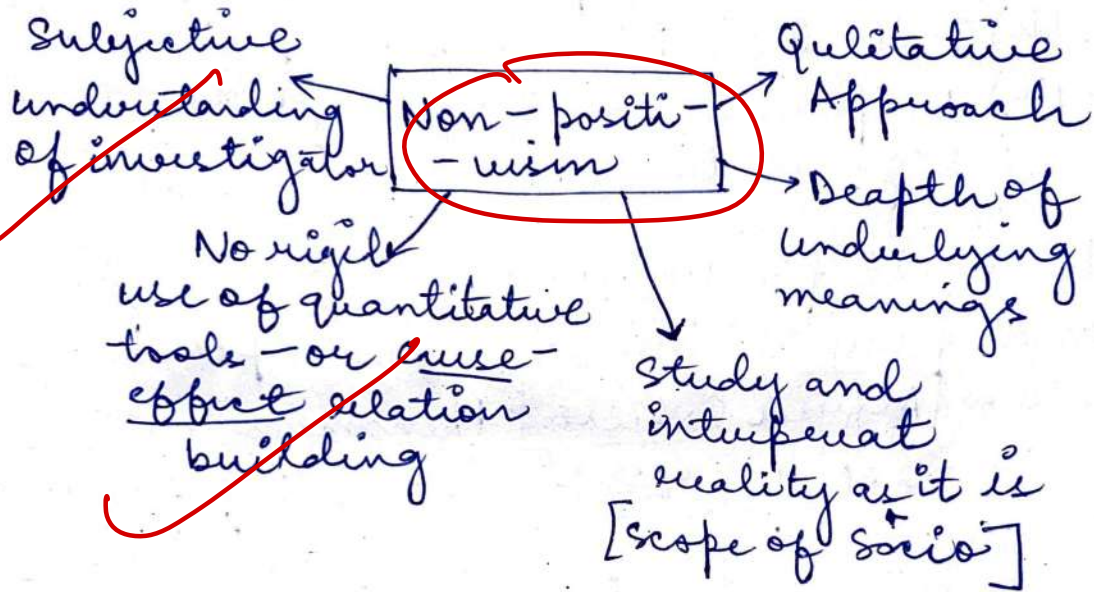 Subjective
understanding
of investigator
Non-positi-
-vism
Qulitative
Approach
Deapth of
underlying
meanings
No rigid
use of quantitative
tools - or cause-
effect relation
building
Study and
interperat
reality as it is
[scope of socio]